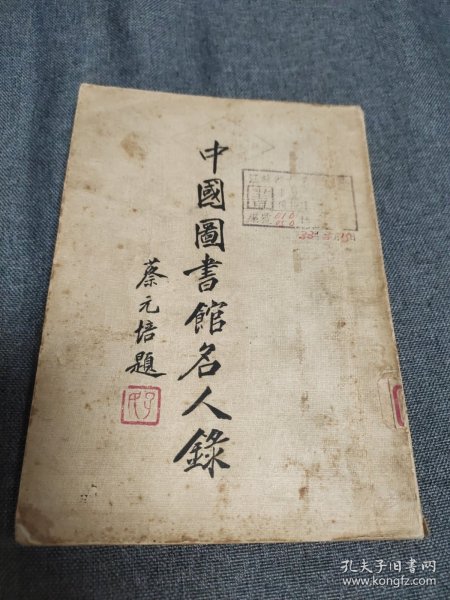 中國圖書館名人錄
蔡元培題
孔夫子旧书网
www.kongfz.com